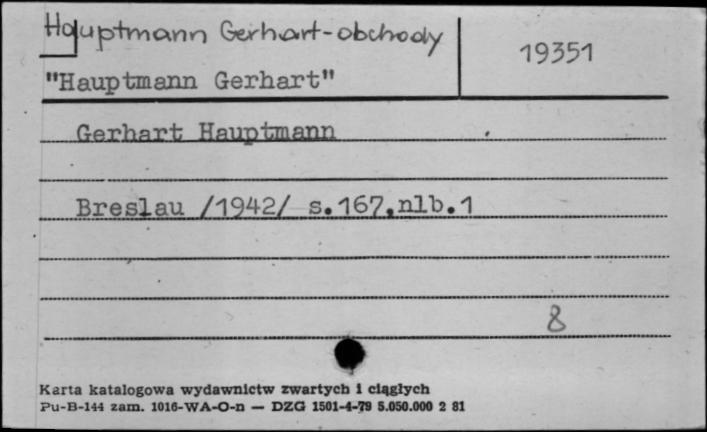 Hauptmann Gerhart-obchody
19351
"Hauptmann Gerhart"
Gerhart Hauptmann
Breslau /1942/ s.167,nlb.1
8
Karta katalogowa wydawnictw zwartych i ciągłych
Pu-B-144 zam. 1016-WA-O-n — DZG 1501-4-79 5.050.000 2 81